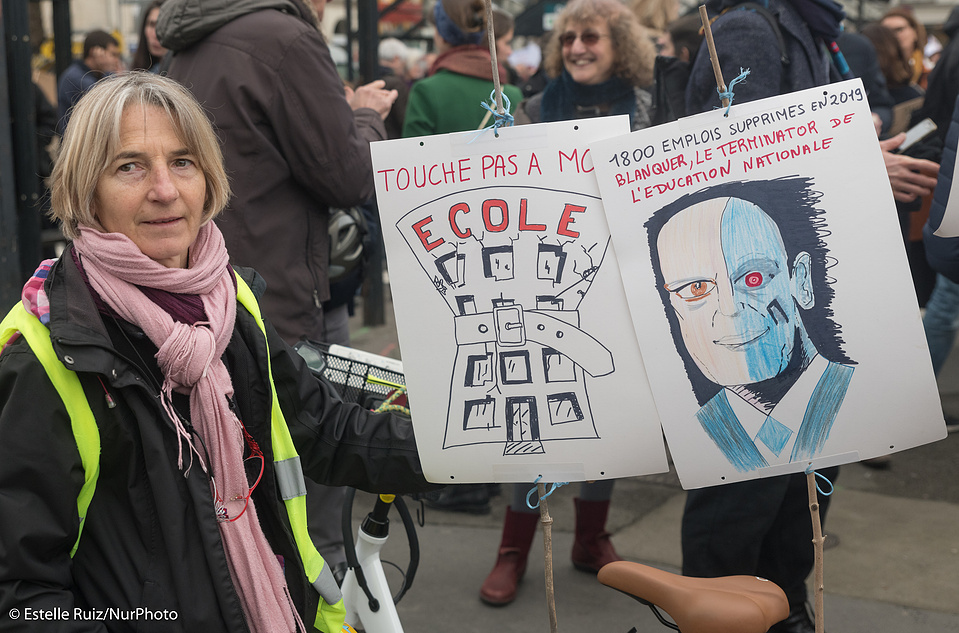 TOUCHE PAS A MO
ECOLE
1800 EMPLOIS SUPPRIMES EN 2019
BLANQUER, LE TERMINATOR DE
L'EDUCATION NATIONALE
© Estelle Ruiz/NurPhoto